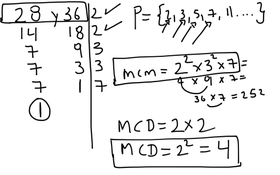 28 y 36 2 ✓
14 18 2 ✓
7 9 3
7 3 3
7 1 7
1
P = {2,1,3,1,5,1,7, 11....}
mcm = 2² x 3² x 7 =
4 x 9 x 7 =
36 x 7 = 252
MCD = 2 x 2
MCD = 2² = 4